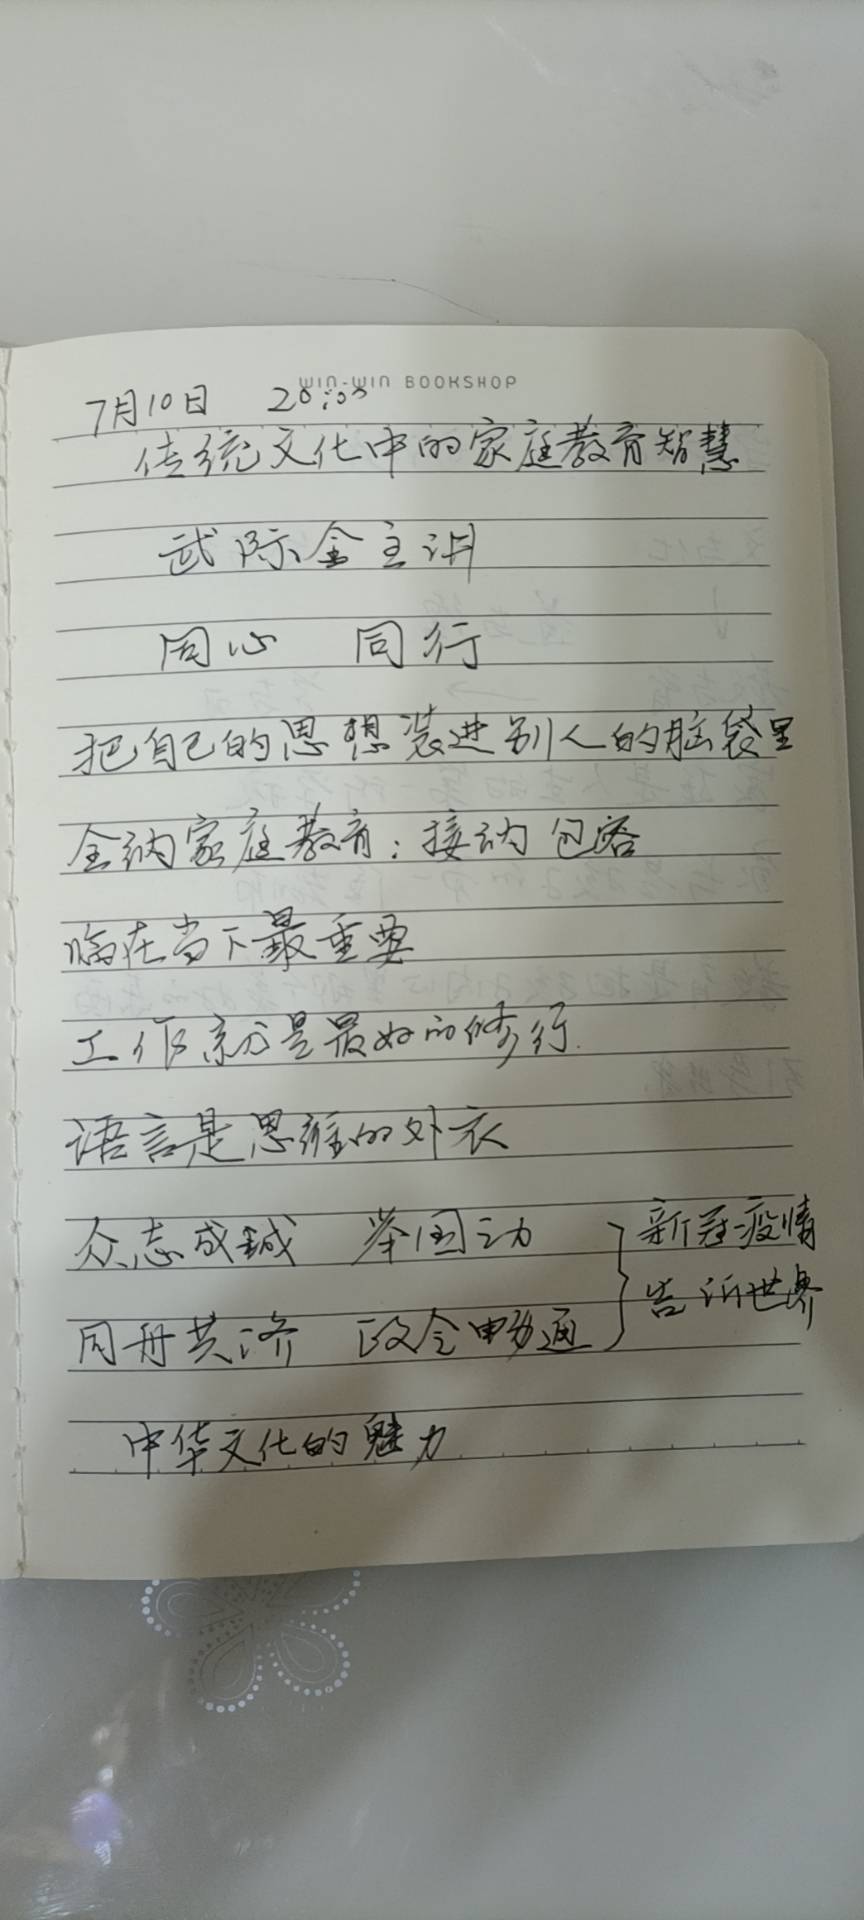 WIN-WIN BOOKSHOP
7月10日 20:00
传统文化中的家庭教育智慧
武际金主讲
同心 同行
把自己的思想装进别人的脑袋里
全纳家庭教育：接纳 包容
临在当下最重要
工作就是最好的修行.
语言是思维的外衣
众志成城 举国动 } 新冠疫情
告诉世界
同舟共济 政令畅通
中华文化的魅力